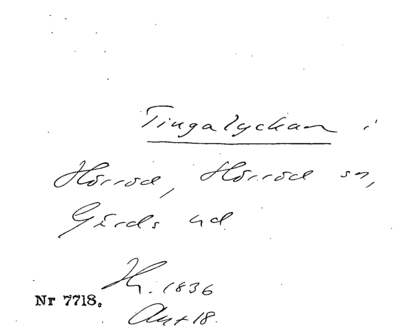 Tingalyckan i
Hörröd, Hörröd sn,
Gärds hd.
H. 1836
Nr 7718.
Ant 18.